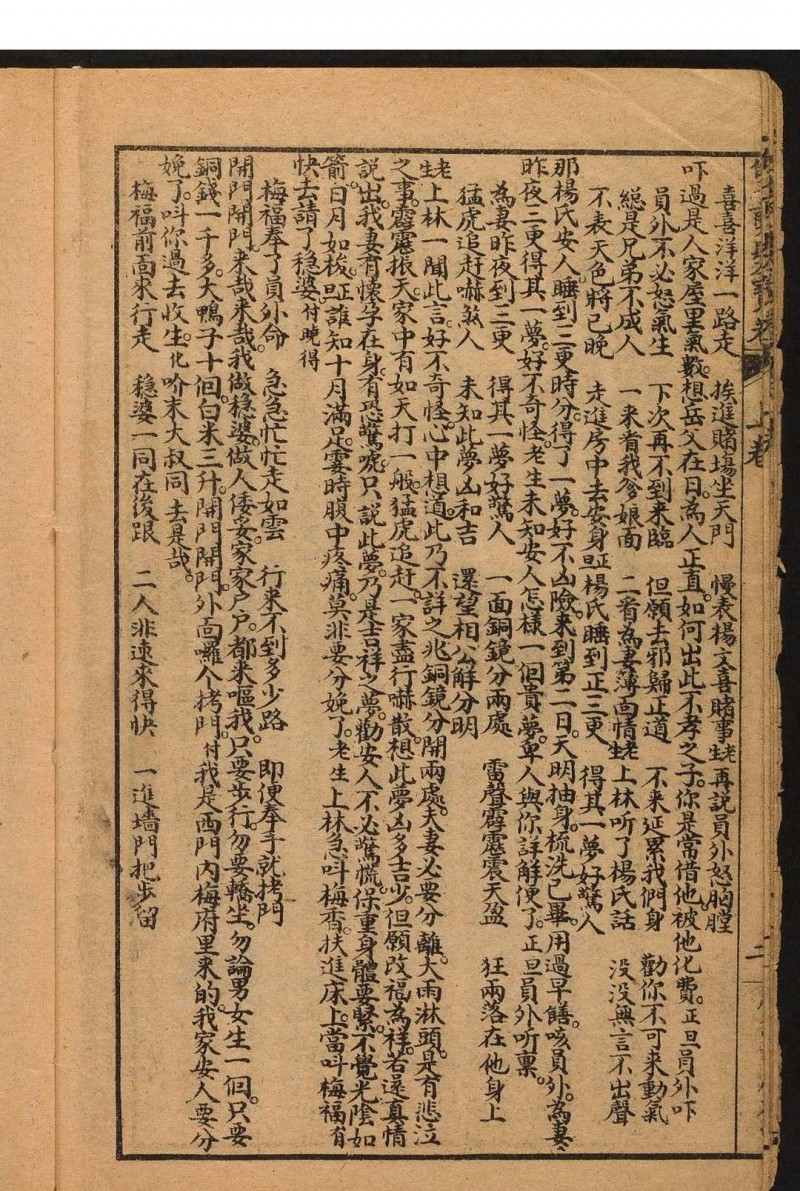 喜喜洋洋一路走　挨進賭場坐天門　慢表楊文喜賭事生　再説員外怒胸膛
吓過是人家屋里氣數想岳父在日為人正直如何出此不孝之子你是常借他被他化費正旦員外吓
員外不必怒氣生　下次再不到來臨　但願去邪歸正道　不來延累我們身　勸你不可來動氣
総是兄弟不成人　一來看我爹娘面　二看為妻薄面情老生上林听了楊氏話　没没無言不出聲
不表天色將已晚　走進房中去安身正旦楊氏睡到正三更　得其一夢好驚人
那楊氏安人睡到三更時分得了一夢好不凶險來到第二日天明抽身梳洗已畢用過早饍咳員外為妻
昨夜三更得其一夢好不奇怪老生未知安人怎樣一個貴夢卑人與你詳解便了正旦員外听禀
為妻昨夜到三更　得其一夢好驚人　一面銅鏡分兩處　雷聲霹靂震天盈　狂雨落在他身上
猛虎追赶嚇煞人　未知此夢凶和吉　還望相公解分明
老生上林一聞此言好不奇怪心中想道此乃不詳之兆銅鏡分開兩處夫妻必要分離大雨淋頭是有悲泣
之事霹靂振天家中有如天打一般猛虎追赶一家盡行嚇散想此夢凶多吉少但願改福為祥若還真情
説出我妻有懷孕在身有恐驚唬只説此夢乃是吉祥之夢勸安人不必驚慌保重身體要緊不覺光陰如
箭日月如梭旦誰知十月滿足霎時腹中疼痛莫非要分娩了老生上林急叫梅香扶進床上當叫梅福有
快去請了穩婆付晚得
梅福奉了員外命　急急忙忙走如雲　行來不到多少路　即便奉手就拷門
開門開門來哉來哉我做穩婆做人倭妥家家户户都來嘔我只要步行勿要轎坐勿論男女生一個只要
銅錢一千多大鴨子十個白米三升開門開門外面囉个拷門付我是西門内梅府里來的我家安人要分
娩了叫你過去收生化吤末大叔同去是哉
梅福前面來行走　穩婆一同在後跟　二人非速來得快　一進墻門把步留
上卷
二